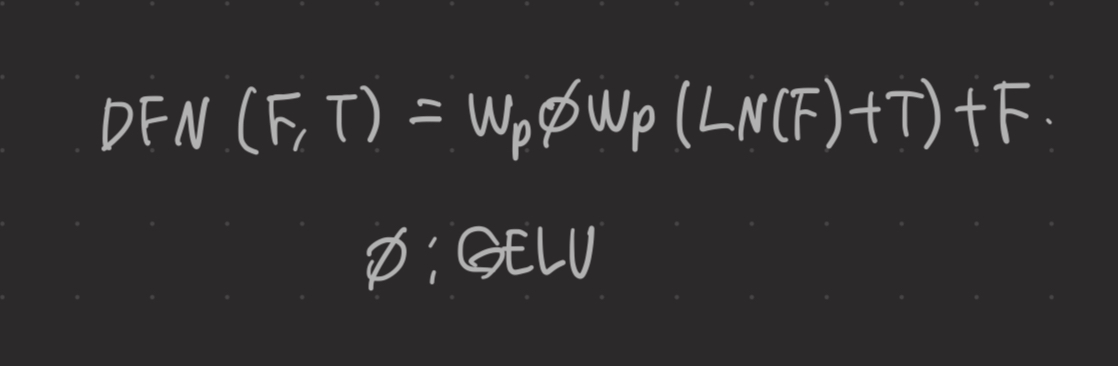 DFN (F, T) = WpøWp (LN(F)+T)+F.
ø : GELU